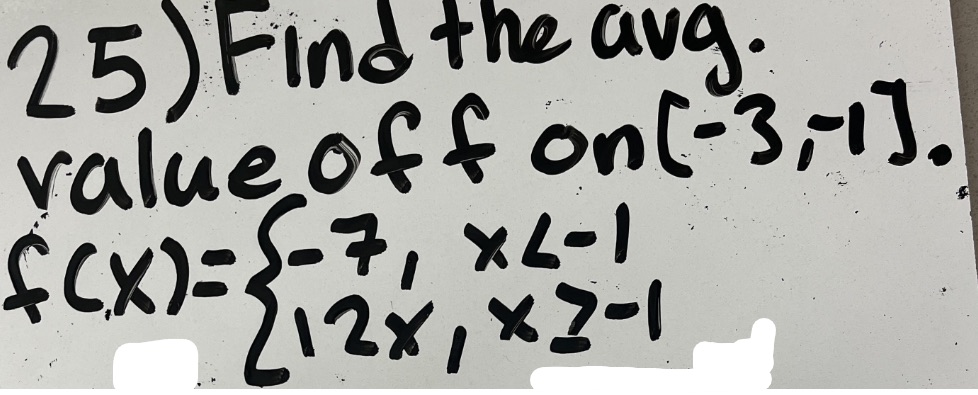 25) Find the avg.
value of f on [-3,-1].
f(x)={-7, x<-1
12x, x≥-1